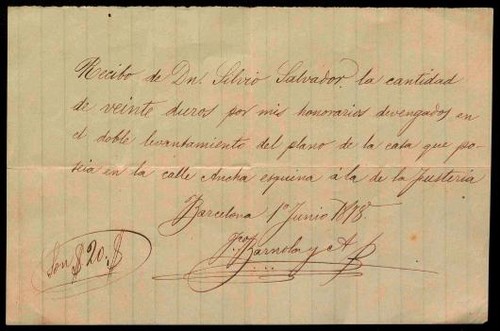 Recibo de Dn. Silvio Salvador. la cantidad
de veinte duros por mis honorarios devengados en
el doble levantamiento del plano de la casa que po-
seia en la calle Ancha esquina á la de la Fusteria
Barcelona 1º Junio 1878.
Barnola y A
Son $ 20. $